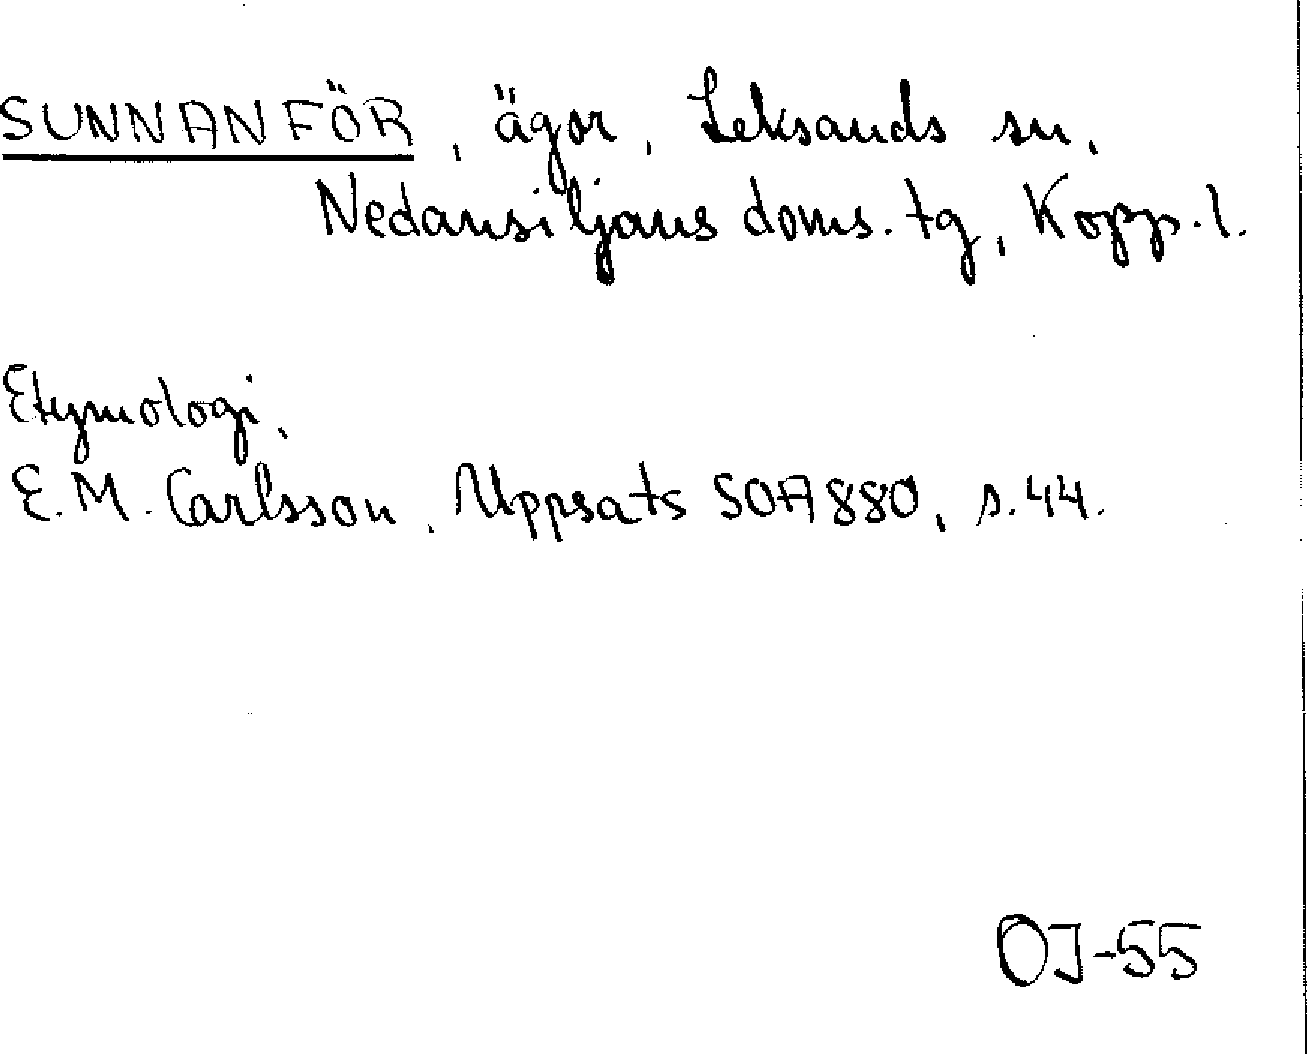 SUNNANFÖR, ägor, Leksands sn,
Nedansiljans doms. tg, Kopp. l.
Etymologi,
E. M. Carlsson, Uppsats SOA 880, s. 44.
OJ-55